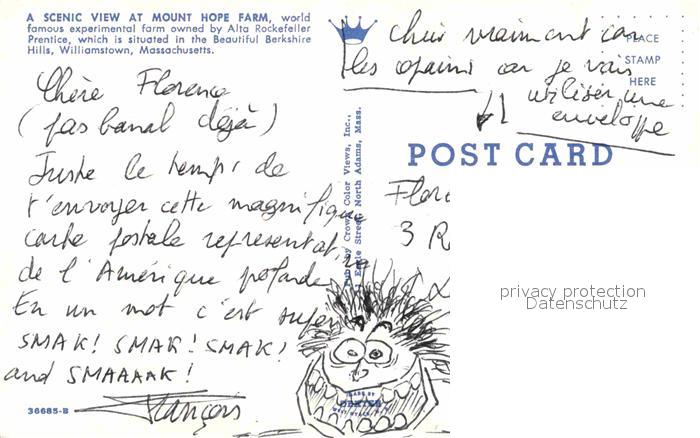 A SCENIC VIEW AT MOUNT HOPE FARM, world
famous experimental farm owned by Alta Rockefeller
Prentice, which is situated in the Beautiful Berkshire
Hills, Williamstown, Massachusetts.
Chère Florence
(pas banal déjà)
Juste le temps de
t'envoyer cette magnifique
carte postale représentative
de l'Amérique profonde
En un mot c'est super
SMAK! SMAK! SMAK!
and SMAAAAK!
François
36685-B
Color Views, Inc.,
Eagle Street, North Adams, Mass.
vraiment
les copains car je vais
utiliser une
enveloppe
PLACE
STAMP
HERE
POST CARD
Flore
3 R
privacy protection
Datenschutz
MADE BY
DEXTER